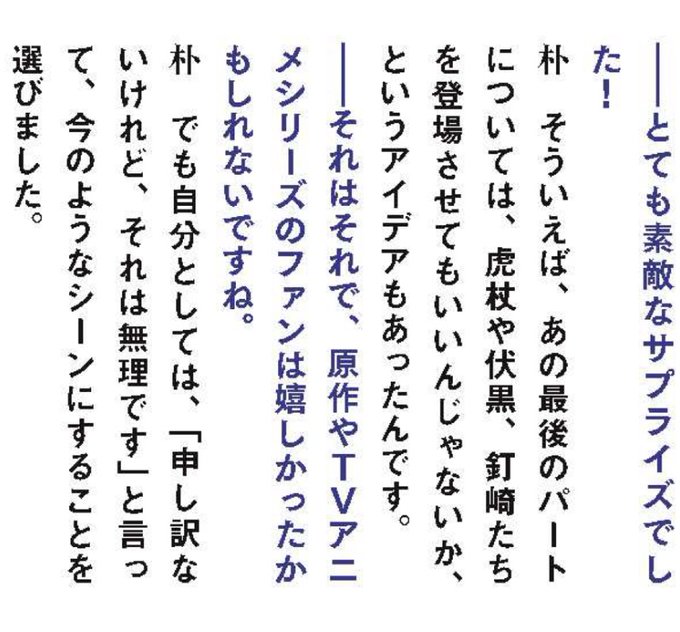 ――とても素敵なサプライズでし
た！
朴　そういえば、あの最後のパート
については、虎杖や伏黒、釘崎たち
を登場させてもいいんじゃないか、
というアイデアもあったんです。
――それはそれで、原作やTVアニ
メシリーズのファンは嬉しかったか
もしれないですね。
朴　でも自分としては、「申し訳な
いけれど、それは無理です」と言っ
て、今のようなシーンにすることを
選びました。